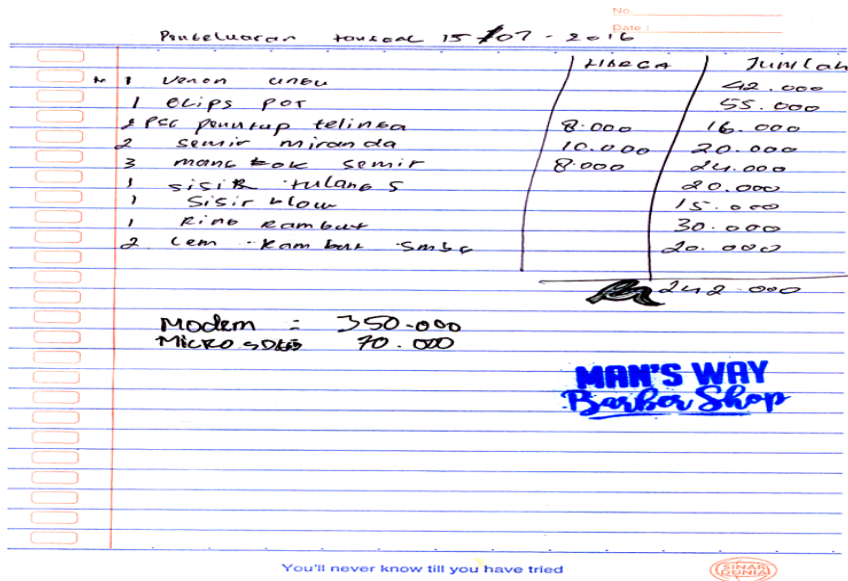 No.
Date :
Pengeluaran tanggal 15/07-2016
HARGA JUMLAH
1 Venon ungu 42.000
1 CLips POT 55.000
2 PSC penutup telinga 8.000 16.000
2 semir miranda 10.000 20.000
3 mangkok semir 8.000 24.000
1 SISIR tulang 5 20.000
1 Sisir blow 15.000
1 Ring Rambut 30.000
2 Lem Rambut 20.000
242.000
Modem = 350.000
MICRO 70.000
MAN'S WAY
Barber Shop
You'll never know till you have tried
SINAR DUNIA